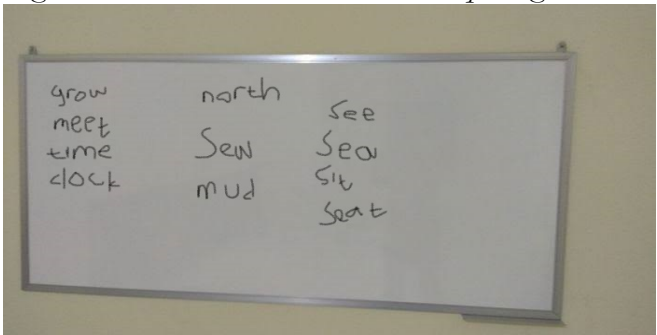 grow
meet
time
clock
north
Sew
mud
See
Sea
Sit
Seat